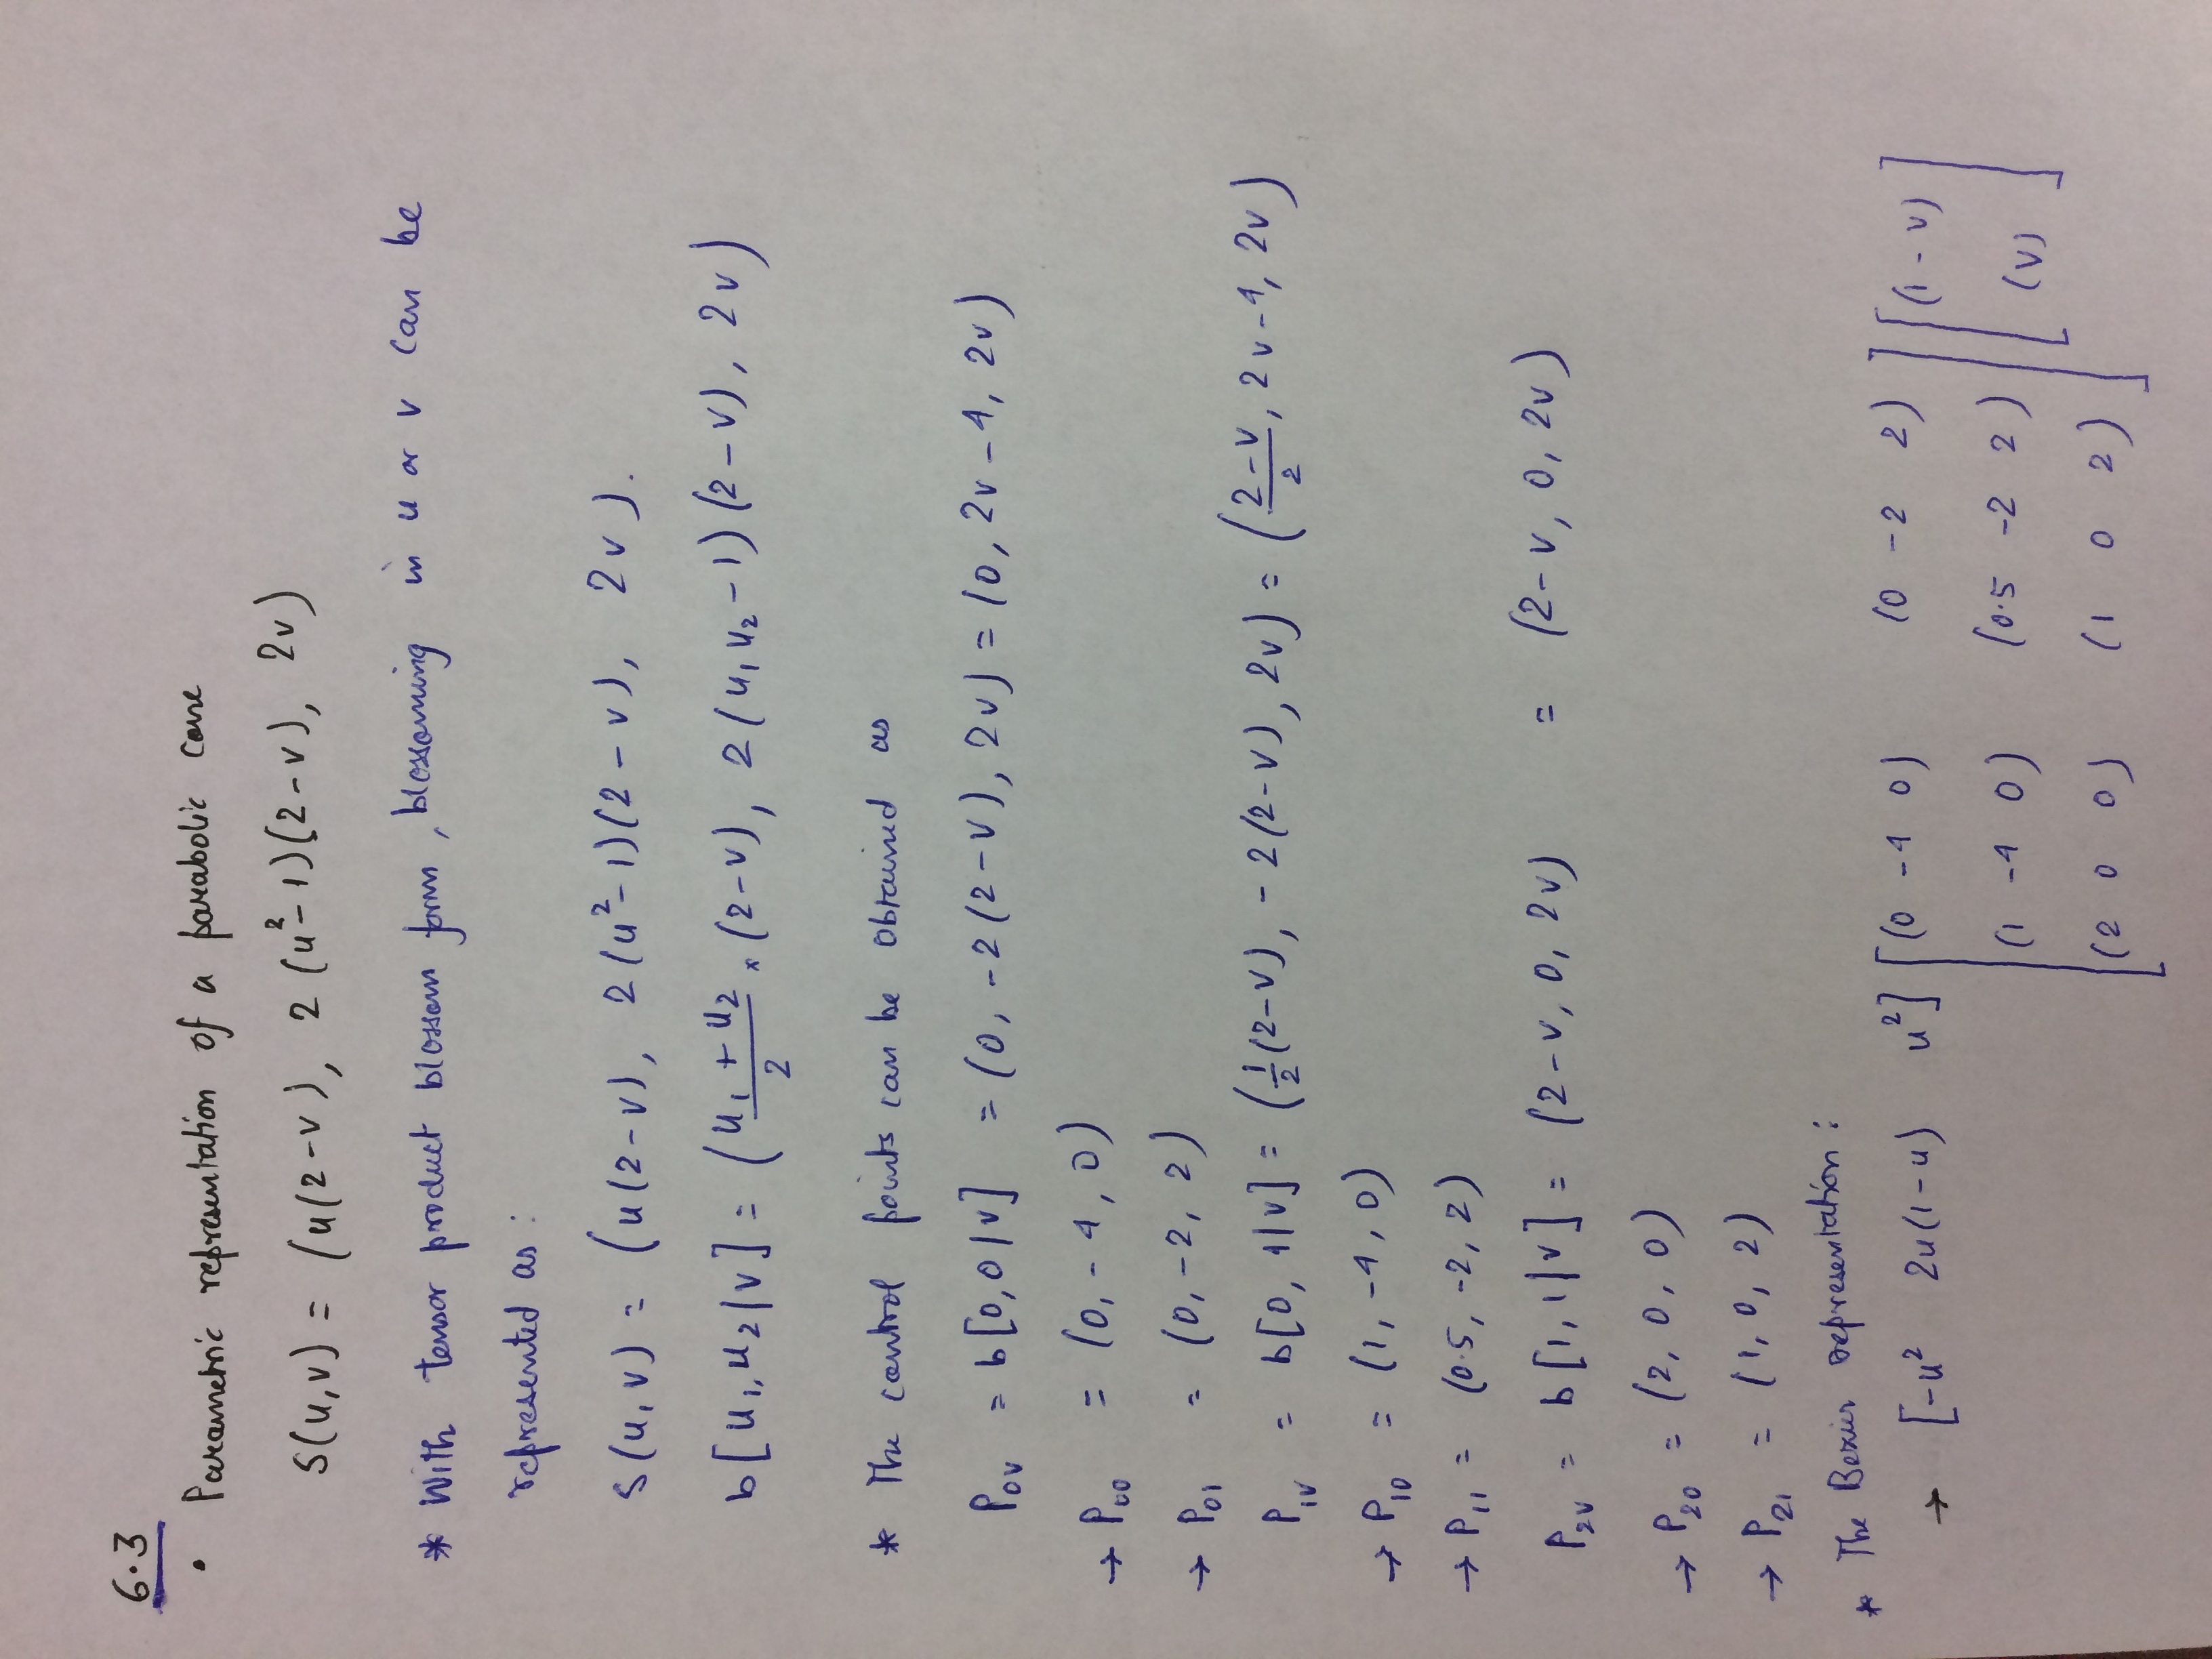 6.3
• Parametric representation of a parabolic cone
S(u,v) = (u(2-v), 2(u²-1)(2-v), 2v)
* With tensor product blossom form, blossoming in u or v can be
represented as:
S(u,v) = (u(2-v), 2(u²-1)(2-v), 2v).
b[u₁,u₂|v] = ((u₁+u₂)/2 * (2-v), 2(u₁u₂-1)(2-v), 2v)
* The control points can be obtained as
P₀ᵥ = b[0,0|v] = (0, -2(2-v), 2v) = (0, 2v-4, 2v)
→ P₀₀ = (0, -4, 0)
→ P₀₁ = (0, -2, 2)
P₁ᵥ = b[0, 1|v] = (1/2(2-v), -2(2-v), 2v) = ((2-v)/2, 2v-4, 2v)
→ P₁₀ = (1, -4, 0)
→ P₁₁ = (0.5, -2, 2)
P₂ᵥ = b[1,1|v] = (2-v, 0, 2v) = (2-v, 0, 2v)
→ P₂₀ = (2, 0, 0)
→ P₂₁ = (1, 0, 2)
* The Bezier representation:
→ [-u² 2u(1-u) u²] [(0 -4 0) (0 -2 2)] [(1-v)]
(1 -4 0) (0.5 -2 2) (v)
(2 0 0) (1 0 2)